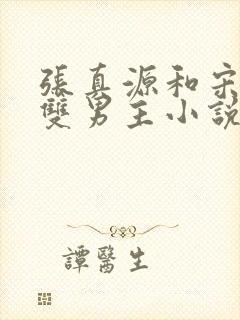 張真源和宋
雙男主小說
譚醫生